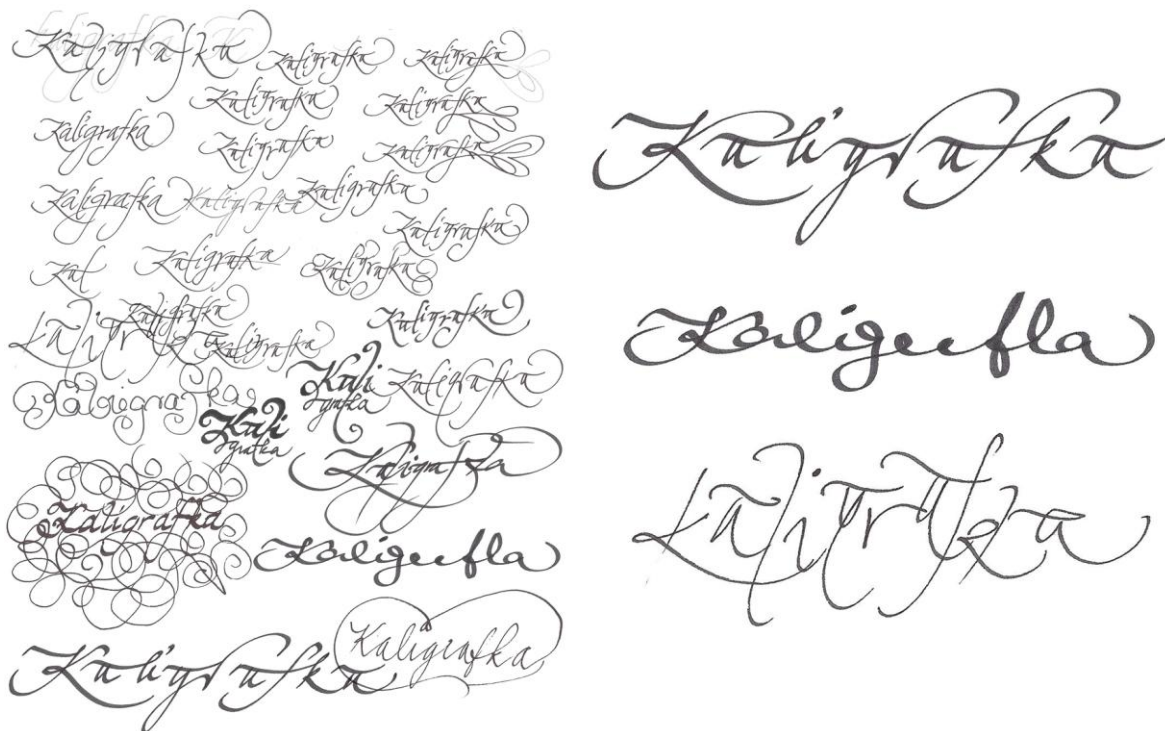 Kaligrafka
Kaligrafka Kaligrafka
Kaligrafka Kaligrafka
Kaligrafka Kaligrafka Kaligrafka
Kaligrafka Kaligrafka Kaligrafka
Kaligrafka
Kal Kaligrafka Kaligrafka
Kaligrafka Kaligrafka
Kaligrafka Kaligrafka
Kaligrafka Kali Kaligrafka
grafka
Kali
grafka
Kaligrafka
Kaligrafka
Kaligrafka
Kaligrafka
Kaligrafka
Kaligrafka
Kaligrafka
Kaligrafka